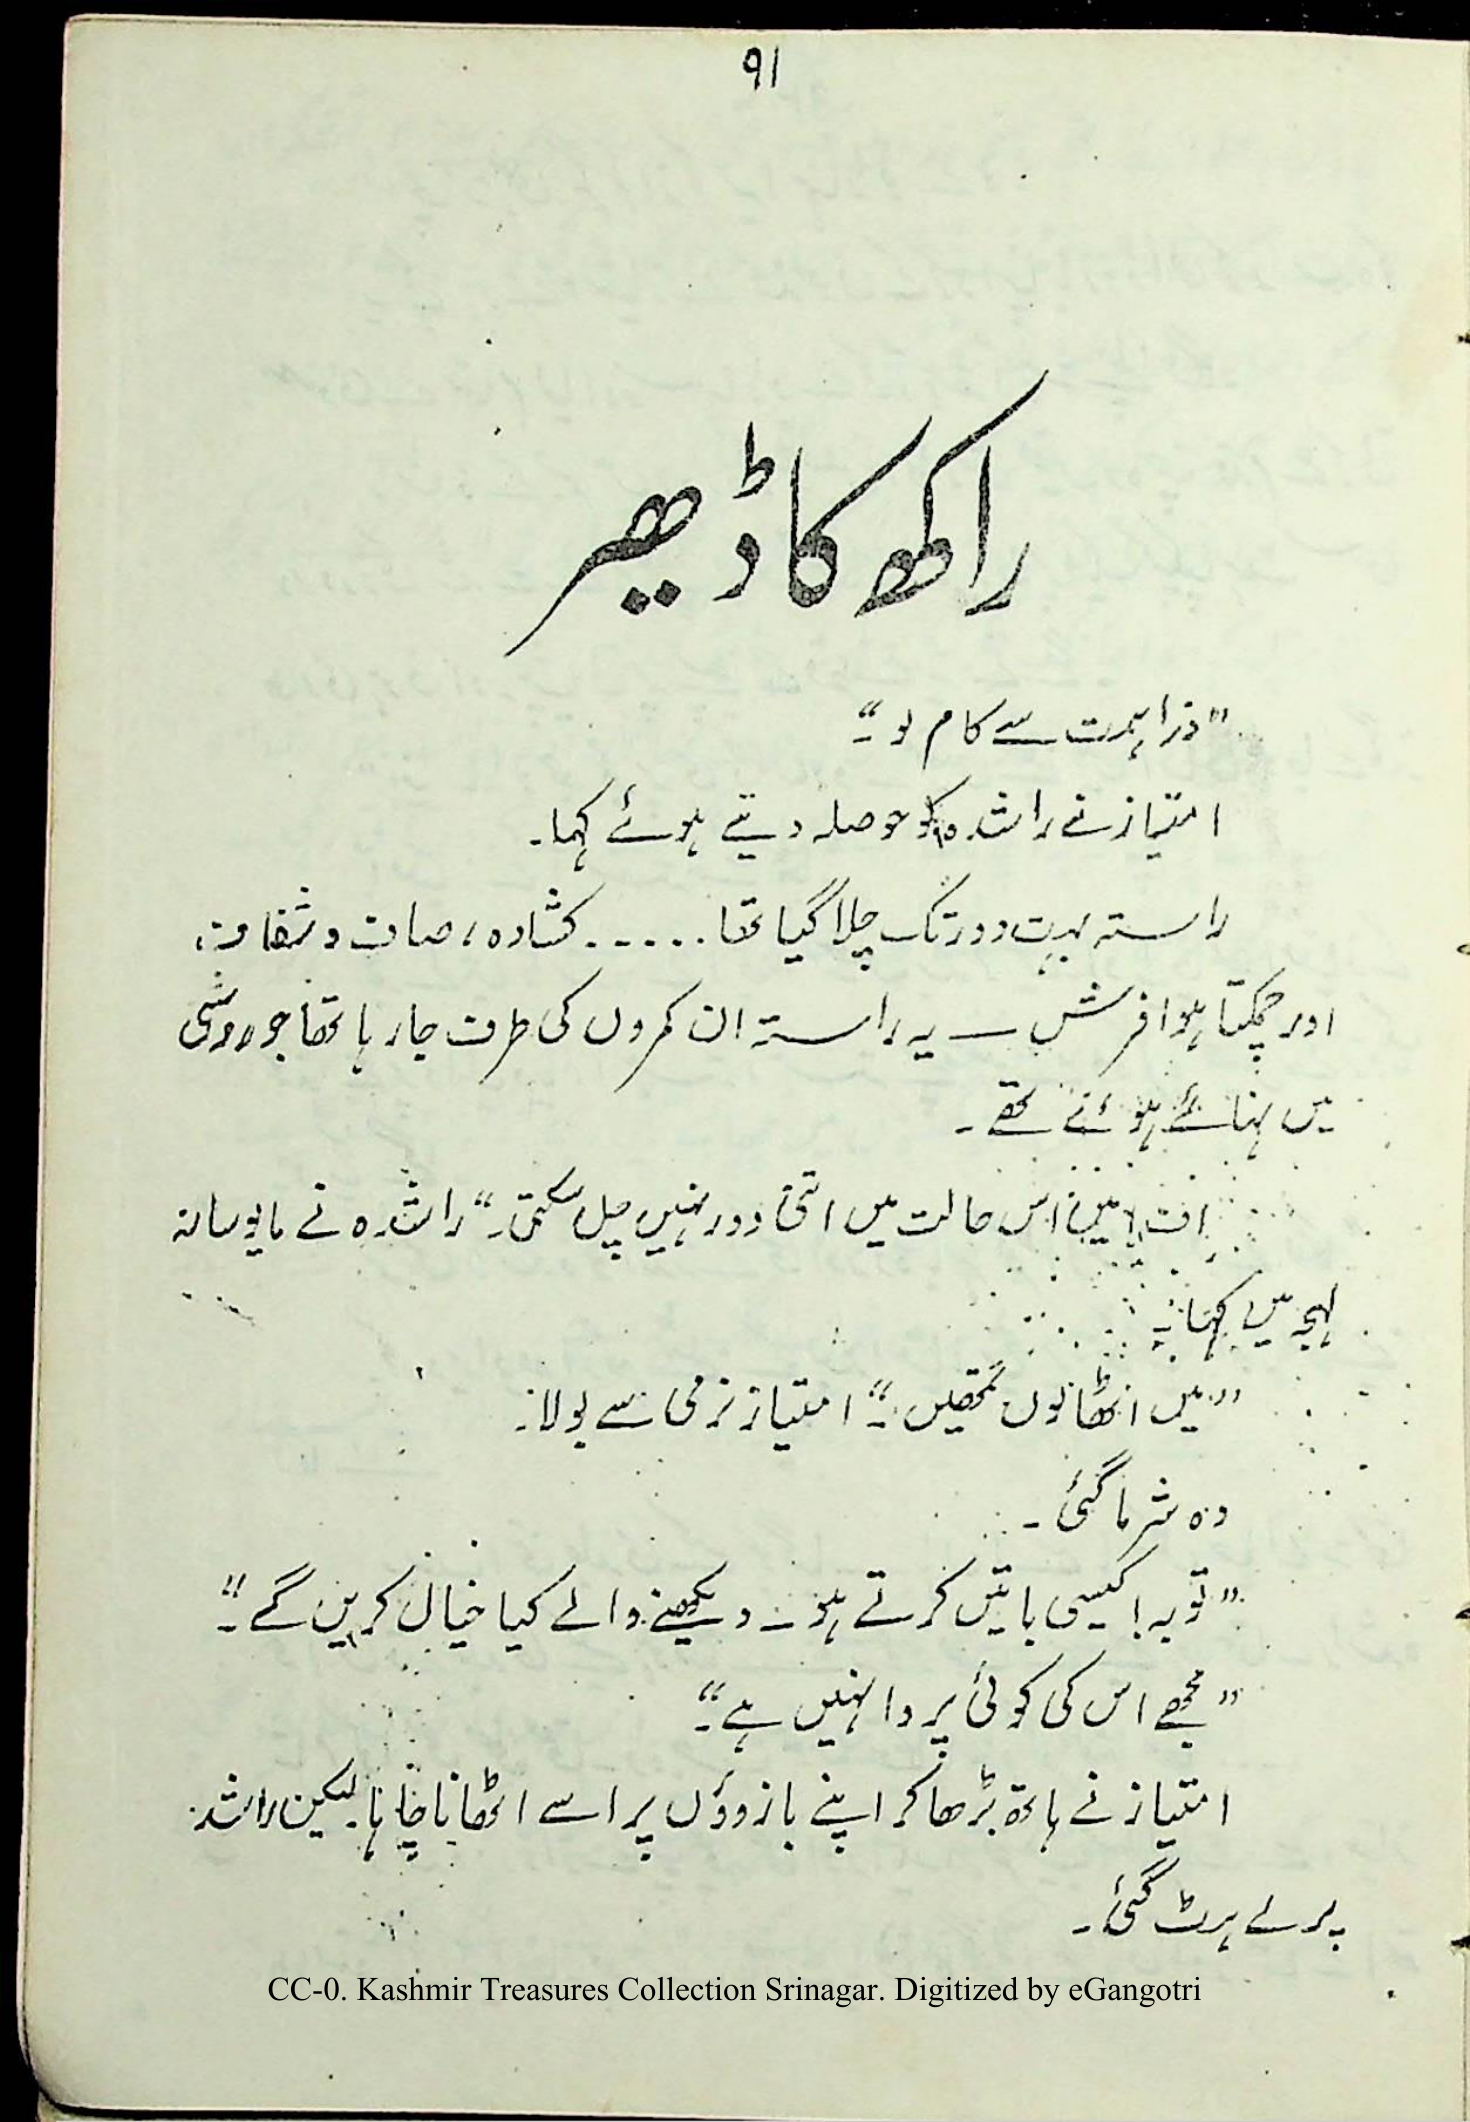 ۹۱
راکھ کا ڈھیر
”ذرا ہمت سے کام لو۔“
امتیاز نے راشدہ کو حوصلہ دیتے ہوئے کہا۔
راستہ بہت دور تک چلا گیا تھا ..... کشادہ، صاف و شفاف،
اور چمکتا ہوا فرش — یہ راستہ ان کمروں کی طرف جا رہا تھا جو روشنی
میں نہائے ہوئے تھے۔
اف! میں اس حالت میں اتنی دور نہیں چل سکتی۔“ راشدہ نے مایوسانہ
لہجہ میں کہا۔
”میں اٹھا لوں تمھیں۔“ امتیاز نرمی سے بولا۔
وہ شرما گئی۔
”توبہ! کیسی باتیں کرتے ہو — دیکھنے والے کیا خیال کریں گے۔“
”مجھے اس کی کوئی پروا نہیں ہے۔“
امتیاز نے ہاتھ بڑھا کر اپنے بازوؤں پر اسے اٹھانا چاہا۔ لیکن راشدہ
پرلے ہٹ گئی۔
CC-0. Kashmir Treasures Collection Srinagar. Digitized by eGangotri